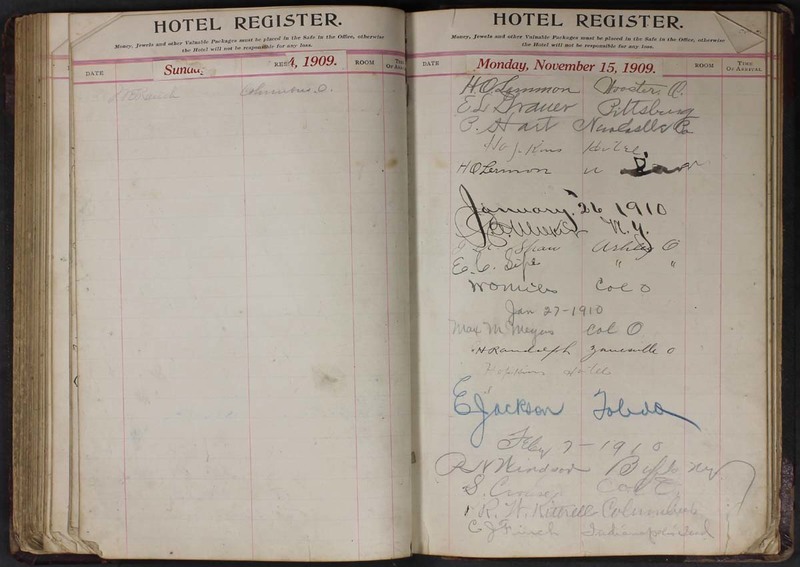 HOTEL REGISTER.
Money, Jewels and other Valuable Packages must be placed in the Safe in the Office, otherwise
the Hotel will not be responsible for any loss.
DATE
RES
4, 1909.
ROOM
Columbus. O.
HOTEL REGISTER.
Money, Jewels and other Valuable Packages must be placed in the Safe in the Office, otherwise
the Hotel will not be responsible for any loss.
DATE
Monday, November 15, 1909.
ROOM
TIME OF ARRIVAL
H O Lemmon Wooster. O.
Pittsburg
P. Hart
Hopkins Hotel.
H O Lemmon "
January. 26 1910
N. Y.
Shaw Ashley O
E. C. " "
Col O
Jan 27-1910
Max M. Meyers Col O
H Randolph Zanesville O
Hopkins Hotel
E Jackson Toledo
Feby 7-1910
R N Windsor Buflo NY
S. Col O.
R. W. Kittrell Columbus
C J Finch